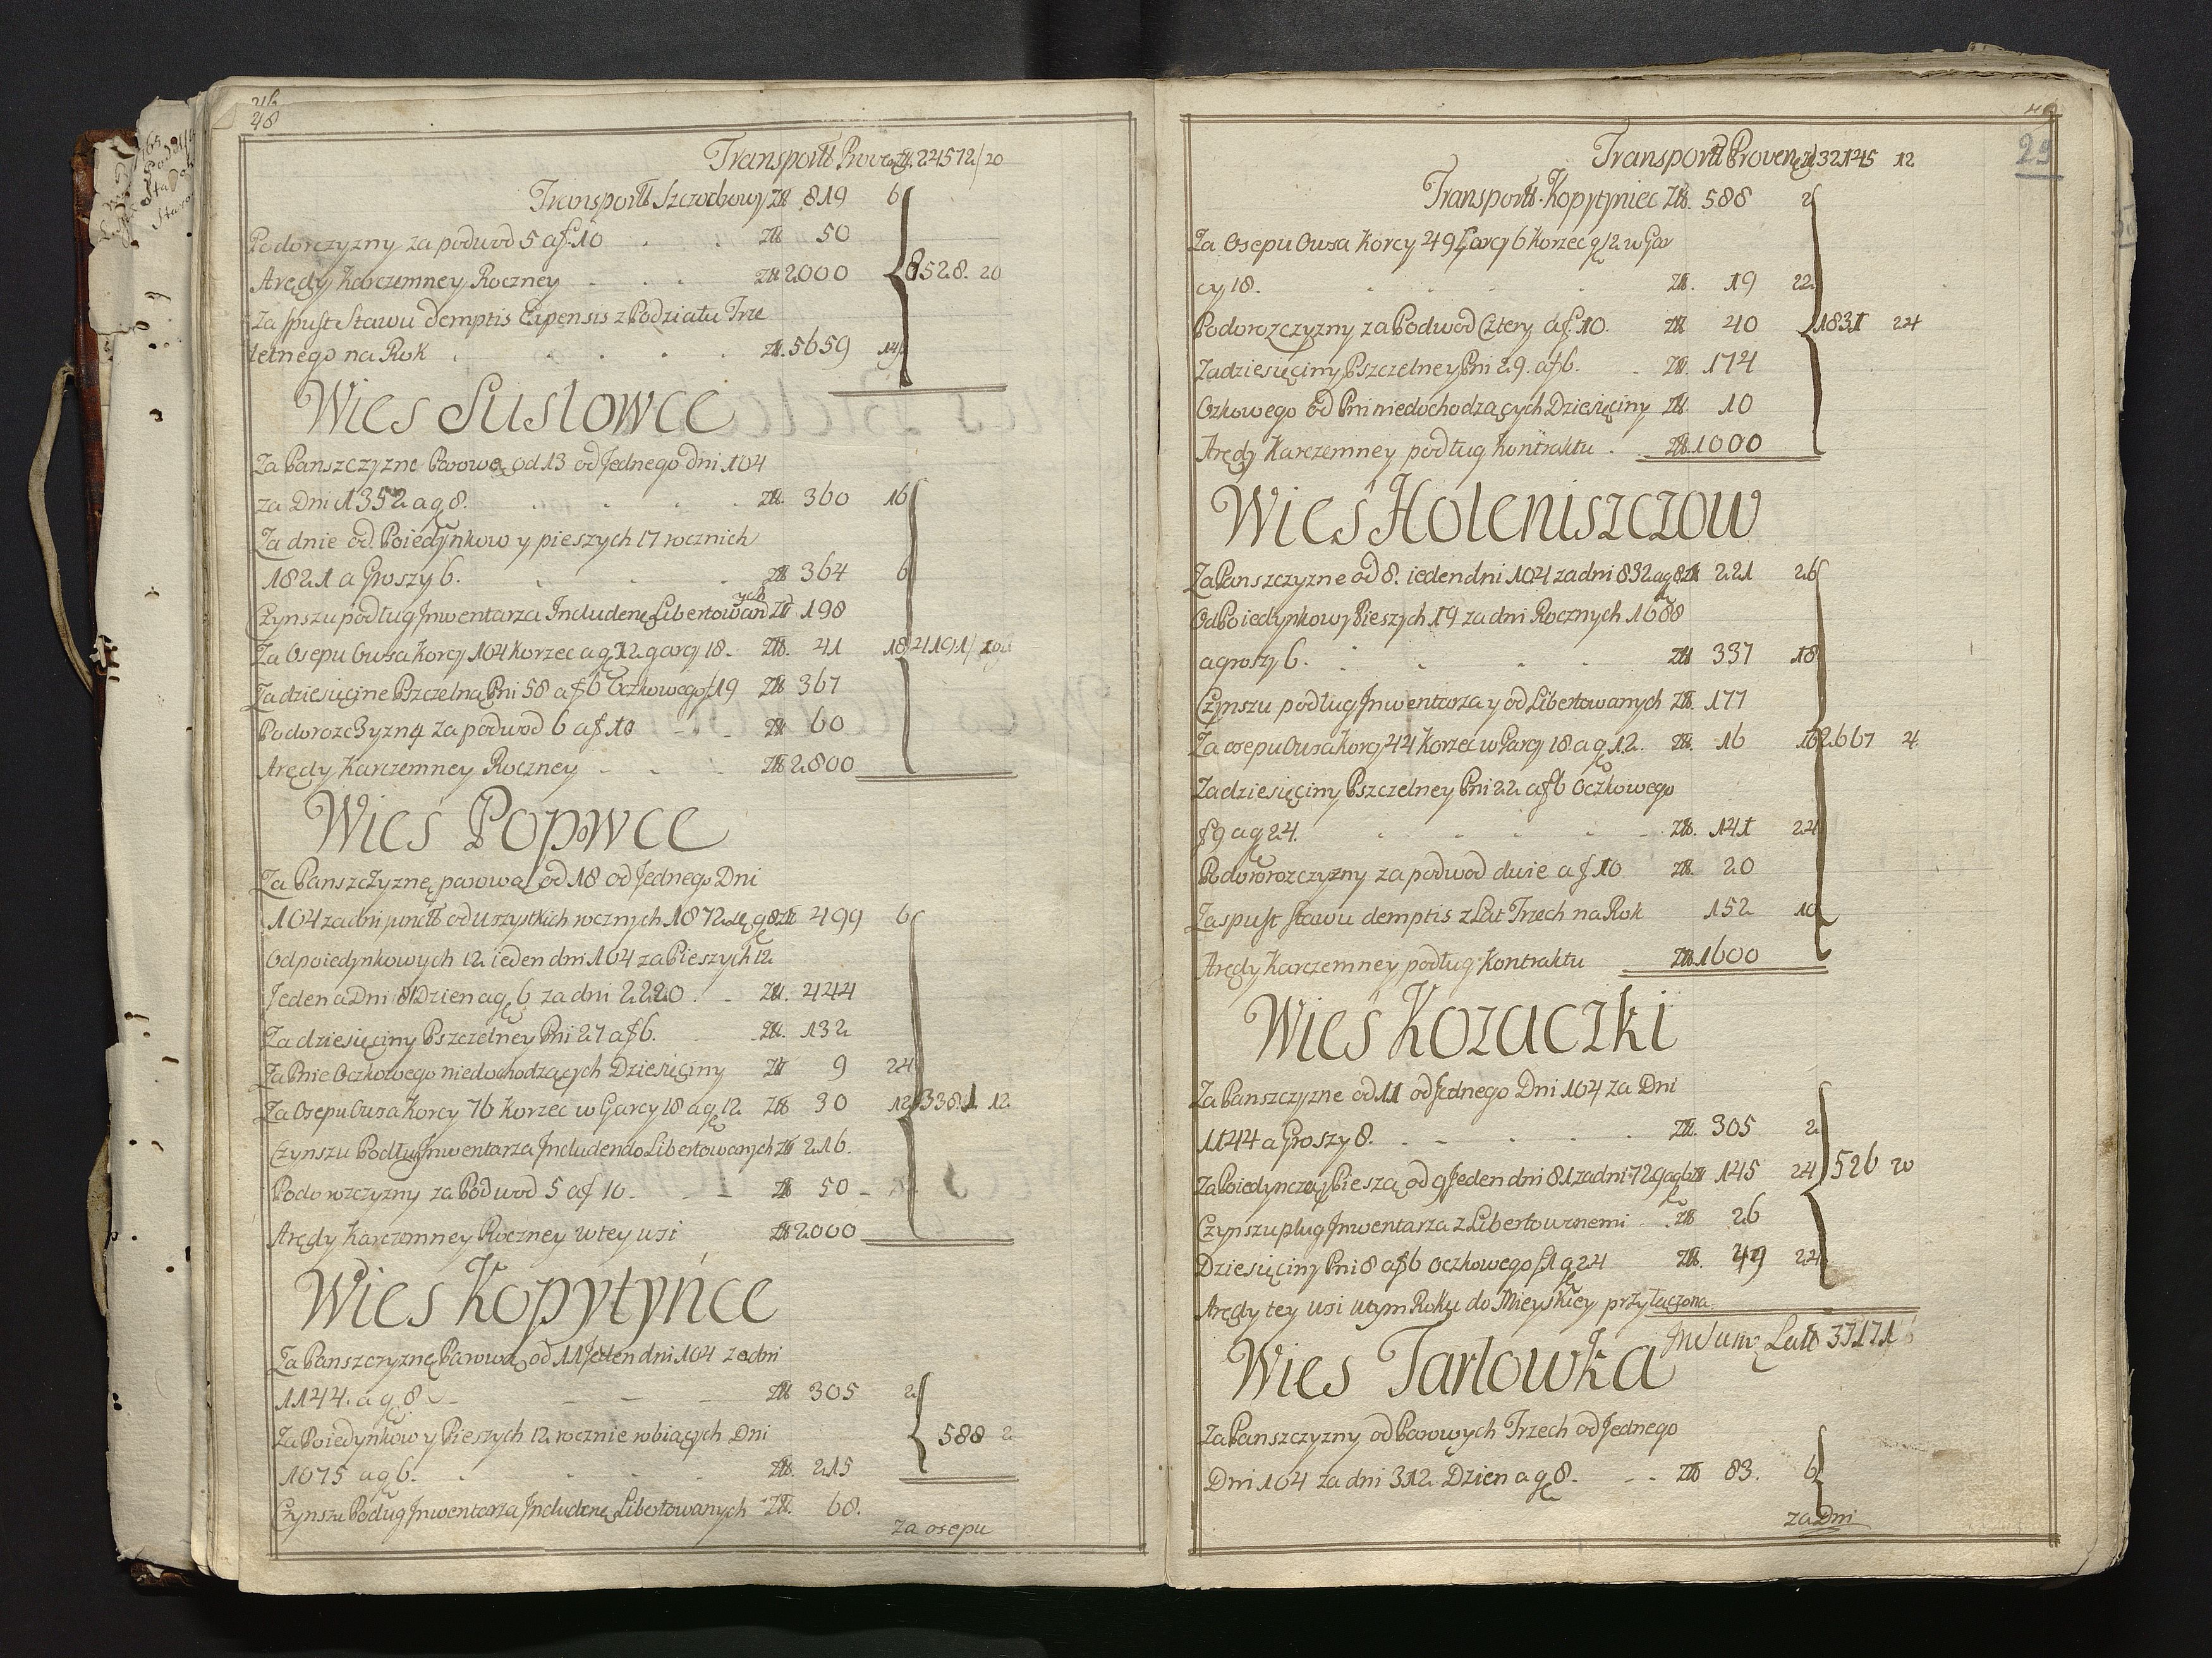 48
Transportt Proveñ Zł. 24512/20
Transportt Szczochowy Złł 819 6
Podorczyzny za podwod 5 a f 10 Złł 50
Arędy Karczemney Roczney Złł 2000 8528. 20
Za spust Stawu demptis Expensis z Podziału Trze
letnego na Rok Złł. 5659 14
Wies Susłowce
Za Panszczyznę Parowę od 13 od Jednego dni 104
za Dni 1352 a g 8. Złł. 360 16
Za dnie od Poiedynkow y pieszych 17 rocznich
1821 a Groszy 6. Złł 364 6
Czynszu podług Inwentarza Includenę Libertowanych Złł 198
Za Osepu Owsa Korcy 104 Korzec a g 12 garcy 18. Złł. 41 18 4191/
Za dziesięcine Pszczelną Pni 58 a f 6 Oczkowego f 19 Złł 367
Podorozczyzny za podwod 6 a f 10 Złł 60
Arędy Karczemney Roczney Złł 2800
Wieś Popowce
Za Panszczyznę parową od 18 od Jednego Dni
104 za dni junctt od wszystkich rocznych 1872 a g 8 Złł 499 6
Od poiedynkowych 12 ieden dni 104 za Pieszych 12
Jeden a Dni 81 Dzien a g 6 za dni 2220. Złł. 444
Za dziesięciny Pszczelney Pni 27 a f 6. Złł. 132
Za Pnie Oczkowego niedochodzących Dziesięciny Złł 9 24
Za Osepu Owsa Korcy 76 Korzec w Garcy 18 a g 12 Złł 30 12 3381 12
Czynszu Podług Inwentarza Includendo Libertowanych Złł 216.
Podorozczyzny za Podwod 5 a f 10 Złł 50
Arędy Karczemney Roczney w tey wsi Złł 2000
Wies Kopytyńce
Za Panszczyznę Parową od 11 Jeden dni 104 za dni
1144. a g 8 Złł 305 2
Za Poiedynkow y Pieszych 12 rocznie robiących Dni 588 2
1075 a g 6. Złł. 215
Czynszu Podług Inwentarza Includenę Libertowanych Złł. 68.
za osepu
29
Transportt Proveñ Zł 32145 12
Transportt Kopytyniec Złł. 588 2
Za Osepu Owsa Korcy 49 Garcy 6 Korzec g 12 w Gar
cy 18. Złł. 19 22
Podorozczyzny za Podwod Cztery a f 10. Złł 40 1831 24
Za dziesięciny Pszczelney Pni 29. a f 6. Złł. 174
Ozkowego od Pni niedochodzących Dziesięciny Złł. 10
Arędy Karczemney podług Kontraktu. Złł. 1000
Wies Holeniszczow
Za Panszczyzne od 8. ieden dni 104 za dni 832 a g 8 Złł 221 26
Od Poiedynkow y Pieszych 19 za dni Rocznych 1688
a groszy 6. Złł 337 18
Czynszu podług Inwentarza y od Libertowanych Złł. 177
Za osepu Owsa Korcy 44 Korzec w Garcy 18 a g 12. Złł. 16 16 2667 4
Za dziesięciny Pszczelney Pni 22 a f 6 Oczkowego
f 9 a g 24. Złł. 141 24
Podororozczyzny za podwod dwie a f 10 Złł. 20
Za spust stawu demptis z Lat Trzech na Rok 152 10
Arędy Karczemney podług Kontraktu Złł. 1600
Wies Kozaczki
Za Panszczyzne od 11 od Jednego Dni 104 za Dni
1144 a Groszy 8. Złł. 305 2
Za Poiedynczą y Pieszą od 9 Jeden dni 81 za dni 729 a g 6 Złł 145 24 526 20
Czynszu pług Inwentarza z Libertowanemi Złł 26
Dziesięciny Pni 8 a f 6 Oczkowego f 1 g 24 Złł. 49 24
Arędy tey wsi w tym Roku do Mieyskiey przyłączona
Latt 37171
Wies Tarlowka
Za Panszczyzny od Parowych Trzech od Jednego
Dni 104 za dni 312 Dzien a g 8. Złł 83. 6
za Dni